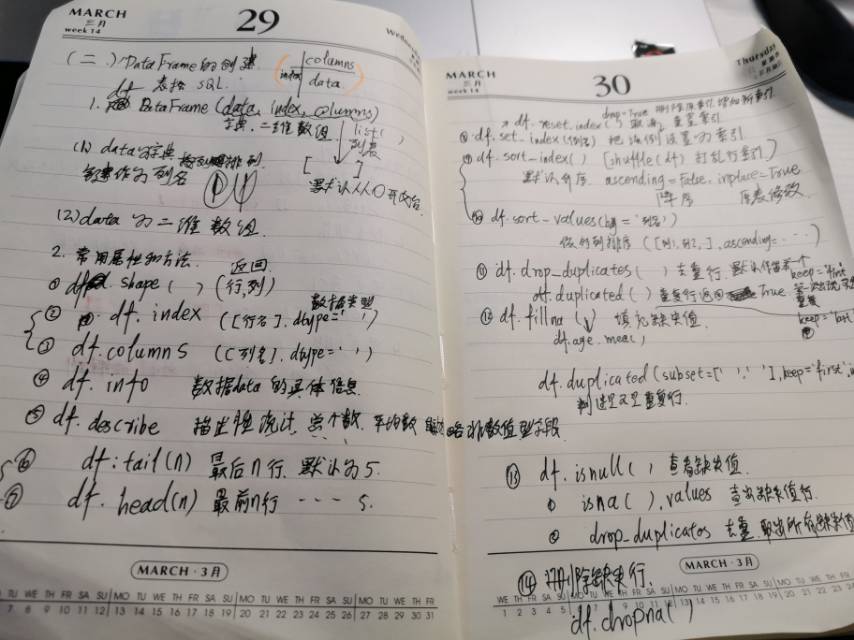 MARCH
三月
week 14
29
(二) DataFrame的创建
columns
index
data
df 表格 SQL.
1. DataFrame (data, index, columns)
字典、二维数组
list( )
列表
(1) data为字典
键作为列名
[ ]
默认从0开始
(2) data 为二维数组.
2. 常用属性和方法. 返回
① df. shape ( ) (行,列)
数据类型
② df. index ([行名], dtype=' ')
③ df. columns ([列名], dtype=' ')
④ df. info 数据data的具体信息
⑤ df. describe 描述性统计, 总个数, 平均数 忽略非数值型字段
⑥ df. tail(n) 最后n行. 默认为5.
⑦ df. head(n) 最前n行 ---- 5.
MARCH · 3月
TU WE TH FR SA SU MO TU WE TH FR SA SU MO TU WE TH FR SA SU MO TU WE TH FR
7 8 9 10 11 12 13 14 15 16 17 18 19 20 21 22 23 24 25 26 27 28 29 30 31
MARCH
三月
week 14
30
Thursday
drop=True
df. reset_index( ) 重置索引
df. set_index(列名) 把该列设置为索引
df. sort_index( ) [shuffle(df) 打乱行索引]
默认升序. ascending=False, inplace=True
降序 原表修改
df. sort_values(by='列名')
依列排序 ([列1,列2,], ascending=----)
df. drop_duplicates( ) 去重行. 默认保留第一个
keep='first'
df. duplicated( ) 重复行返回True
df. fillna( ) 填充缺失值.
keep='last'
df.age.mean,
df. duplicated (subset=[' ',' '], keep='first',
判断是不是重复行.
⑬ df. isnull( ) 查看缺失值.
① isna( ).values 查出缺失值行.
② drop_duplicates 去重, 取出所有缺失值
⑭ 删除缺失行.
df. dropna( )
MARCH · 3月